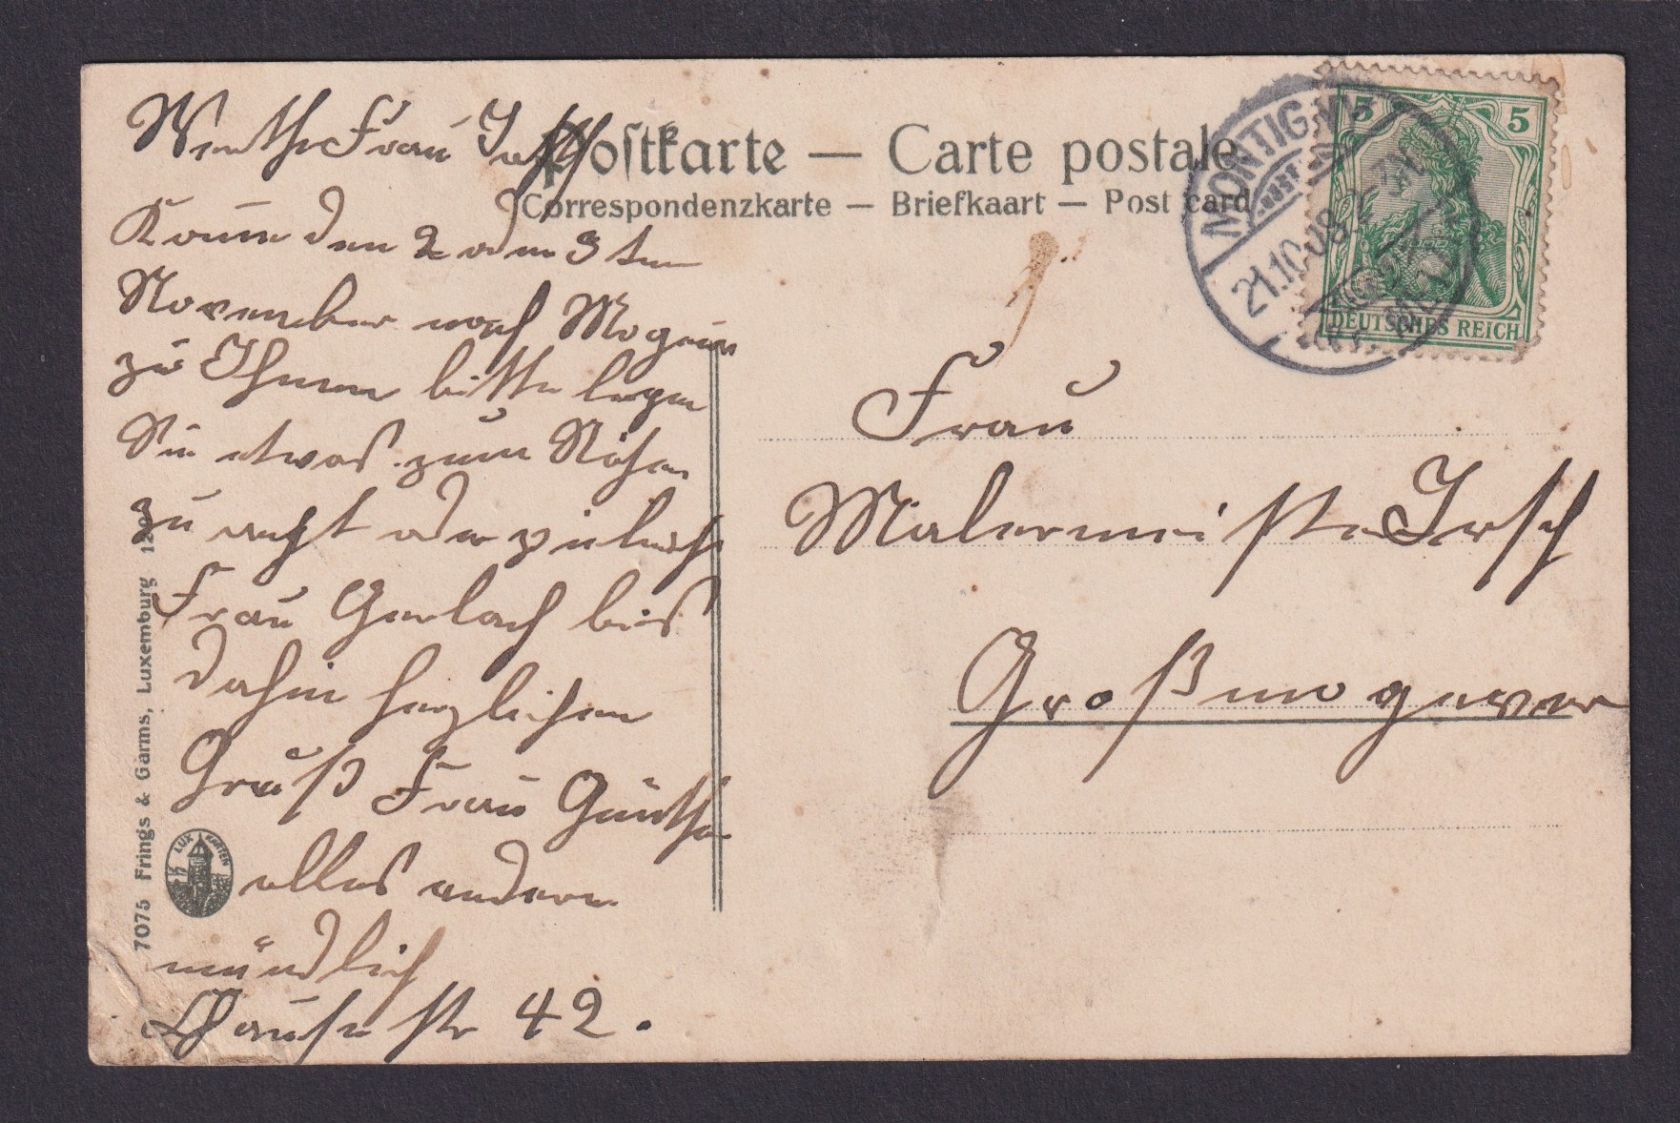 Postkarte — Carte postale
Correspondenzkarte — Briefkaart — Post card
Werthe Frau Irsch
Komme den 2 oder 3 ten
November nach
zu Ihnen bitte legen
Sie etwas zum Nähen
zu recht oder vieleicht
Frau Gerlach bis
dahin herzlichen
Gruß Frau Günther
alles andere
mündlich
str 42.
Frau
Malermeister Irsch
Großmogewer
5 5
DEUTSCHES REICH
MONTIGNY
21.10.09
LUX KARTEN
7075 Frings & Garms, Luxemburg